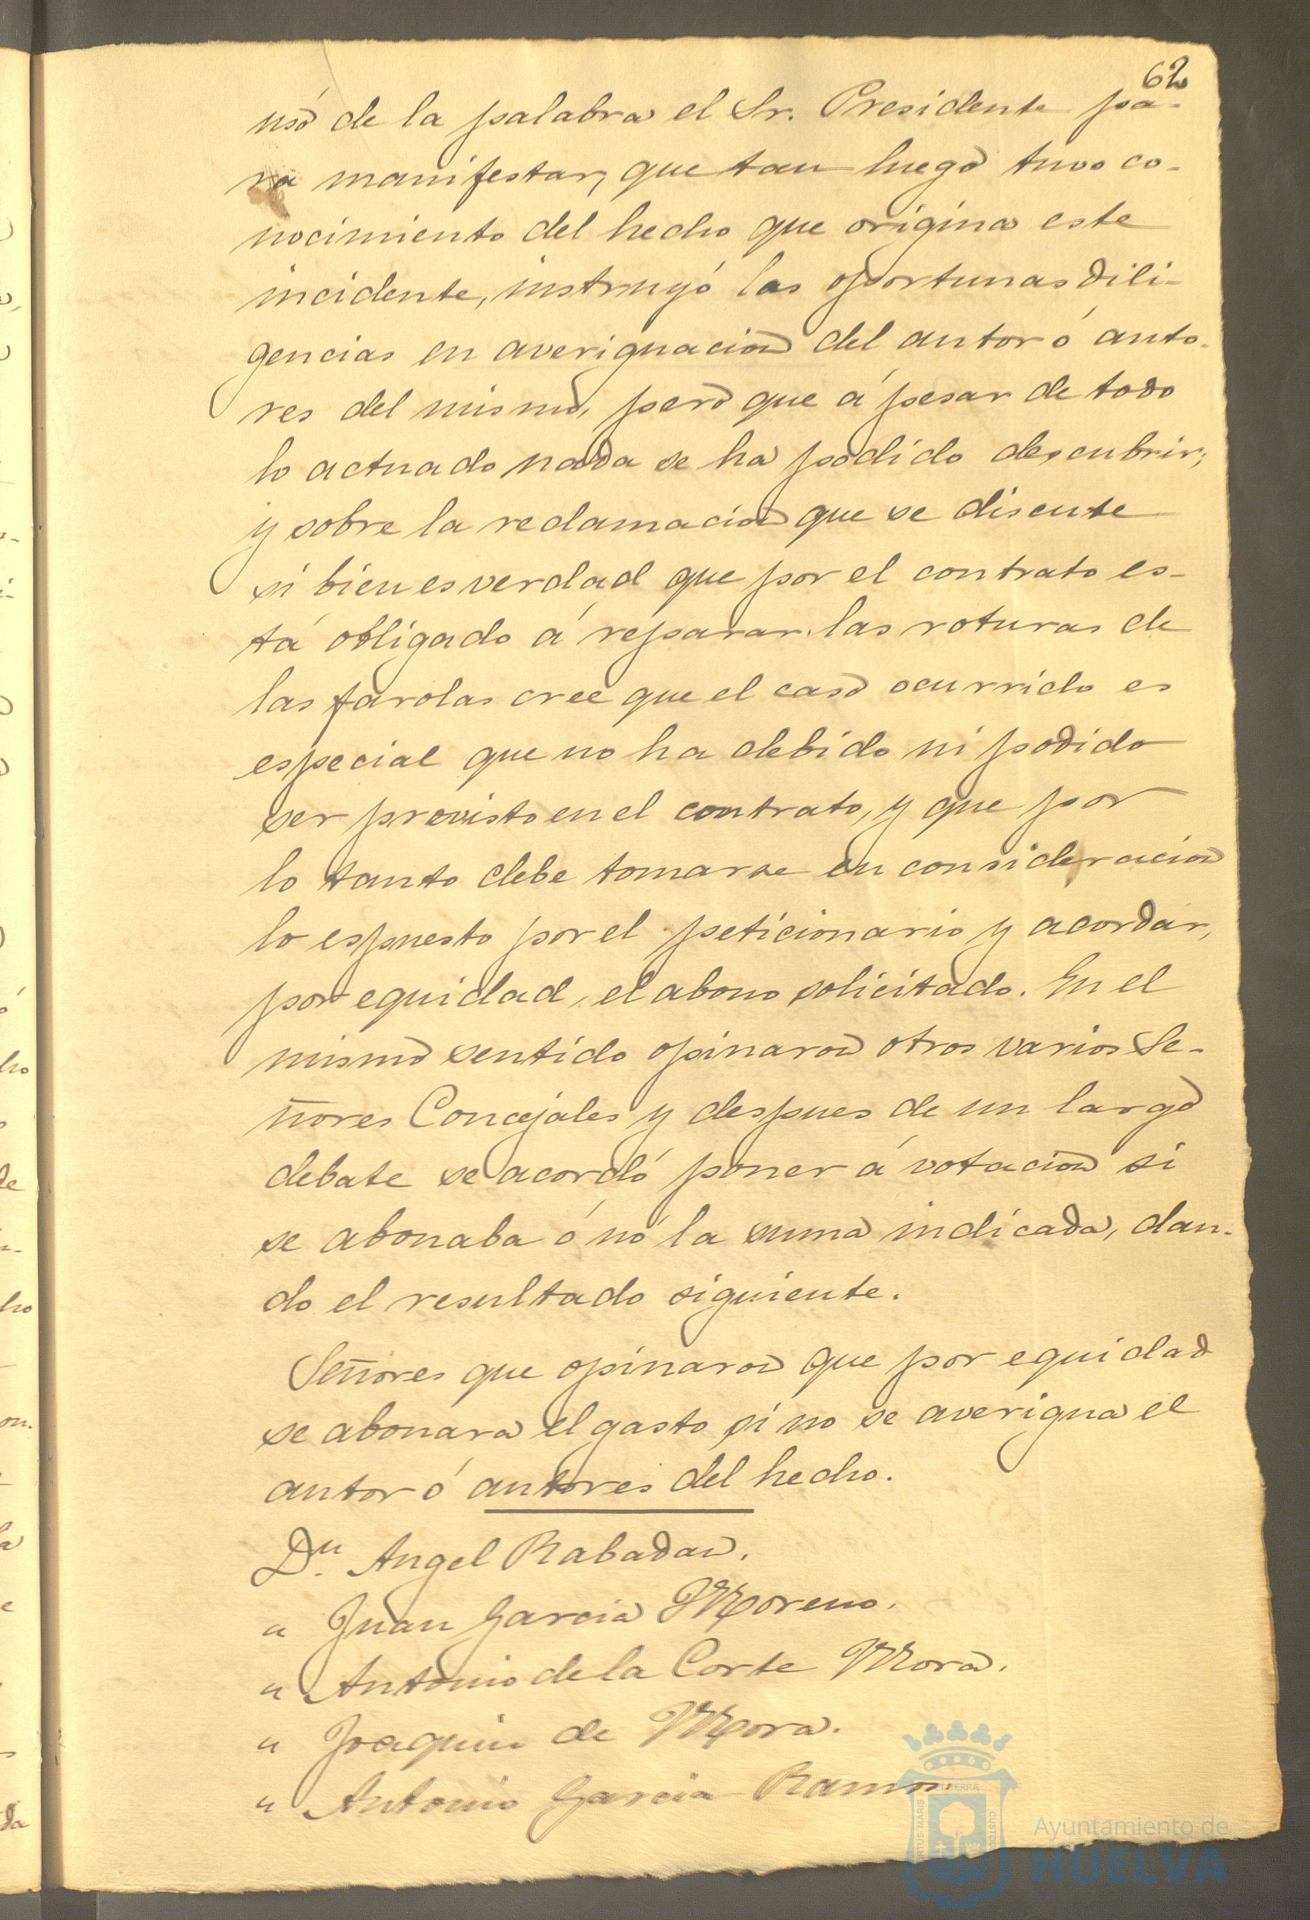 62
usó de la palabra el Sr. Presidente pa-
ra manifestar, que tan luego tuvo co-
nocimiento del hecho que origina este
incidente, instruyó las oportunas dili-
gencias en averiguacion del autor ó auto-
res del mismo, pero que á pesar de todo
lo actuado nada se ha podido descubrir;
y sobre la reclamacion que se discute
si bien es verdad que por el contrato es-
tá obligado á reparar las roturas de
las farolas cree que el caso ocurrido es
especial que no ha debido ni podido
ser previsto en el contrato, y que por
lo tanto debe tomarse en consideracion
lo espuesto por el peticionario y acordar,
por equidad, el abono solicitado. En el
mismo sentido opinaron otros varios Se-
ñores Concejales y despues de un largo
debate se acordó poner á votacion si
se abonaba ó nó la suma indicada, dan-
do el resultado siguiente.
Señores que opinaron que por equidad
se abonara el gasto si no se averigua el
autor ó autores del hecho.
Dn. Angel Rabadan.
" Juan Garcia Moreno.
" Antonio de la Corte Mora.
" Joaquin de Mora.
" Antonio Garcia Ramos.
Ayuntamiento de
HUELVA